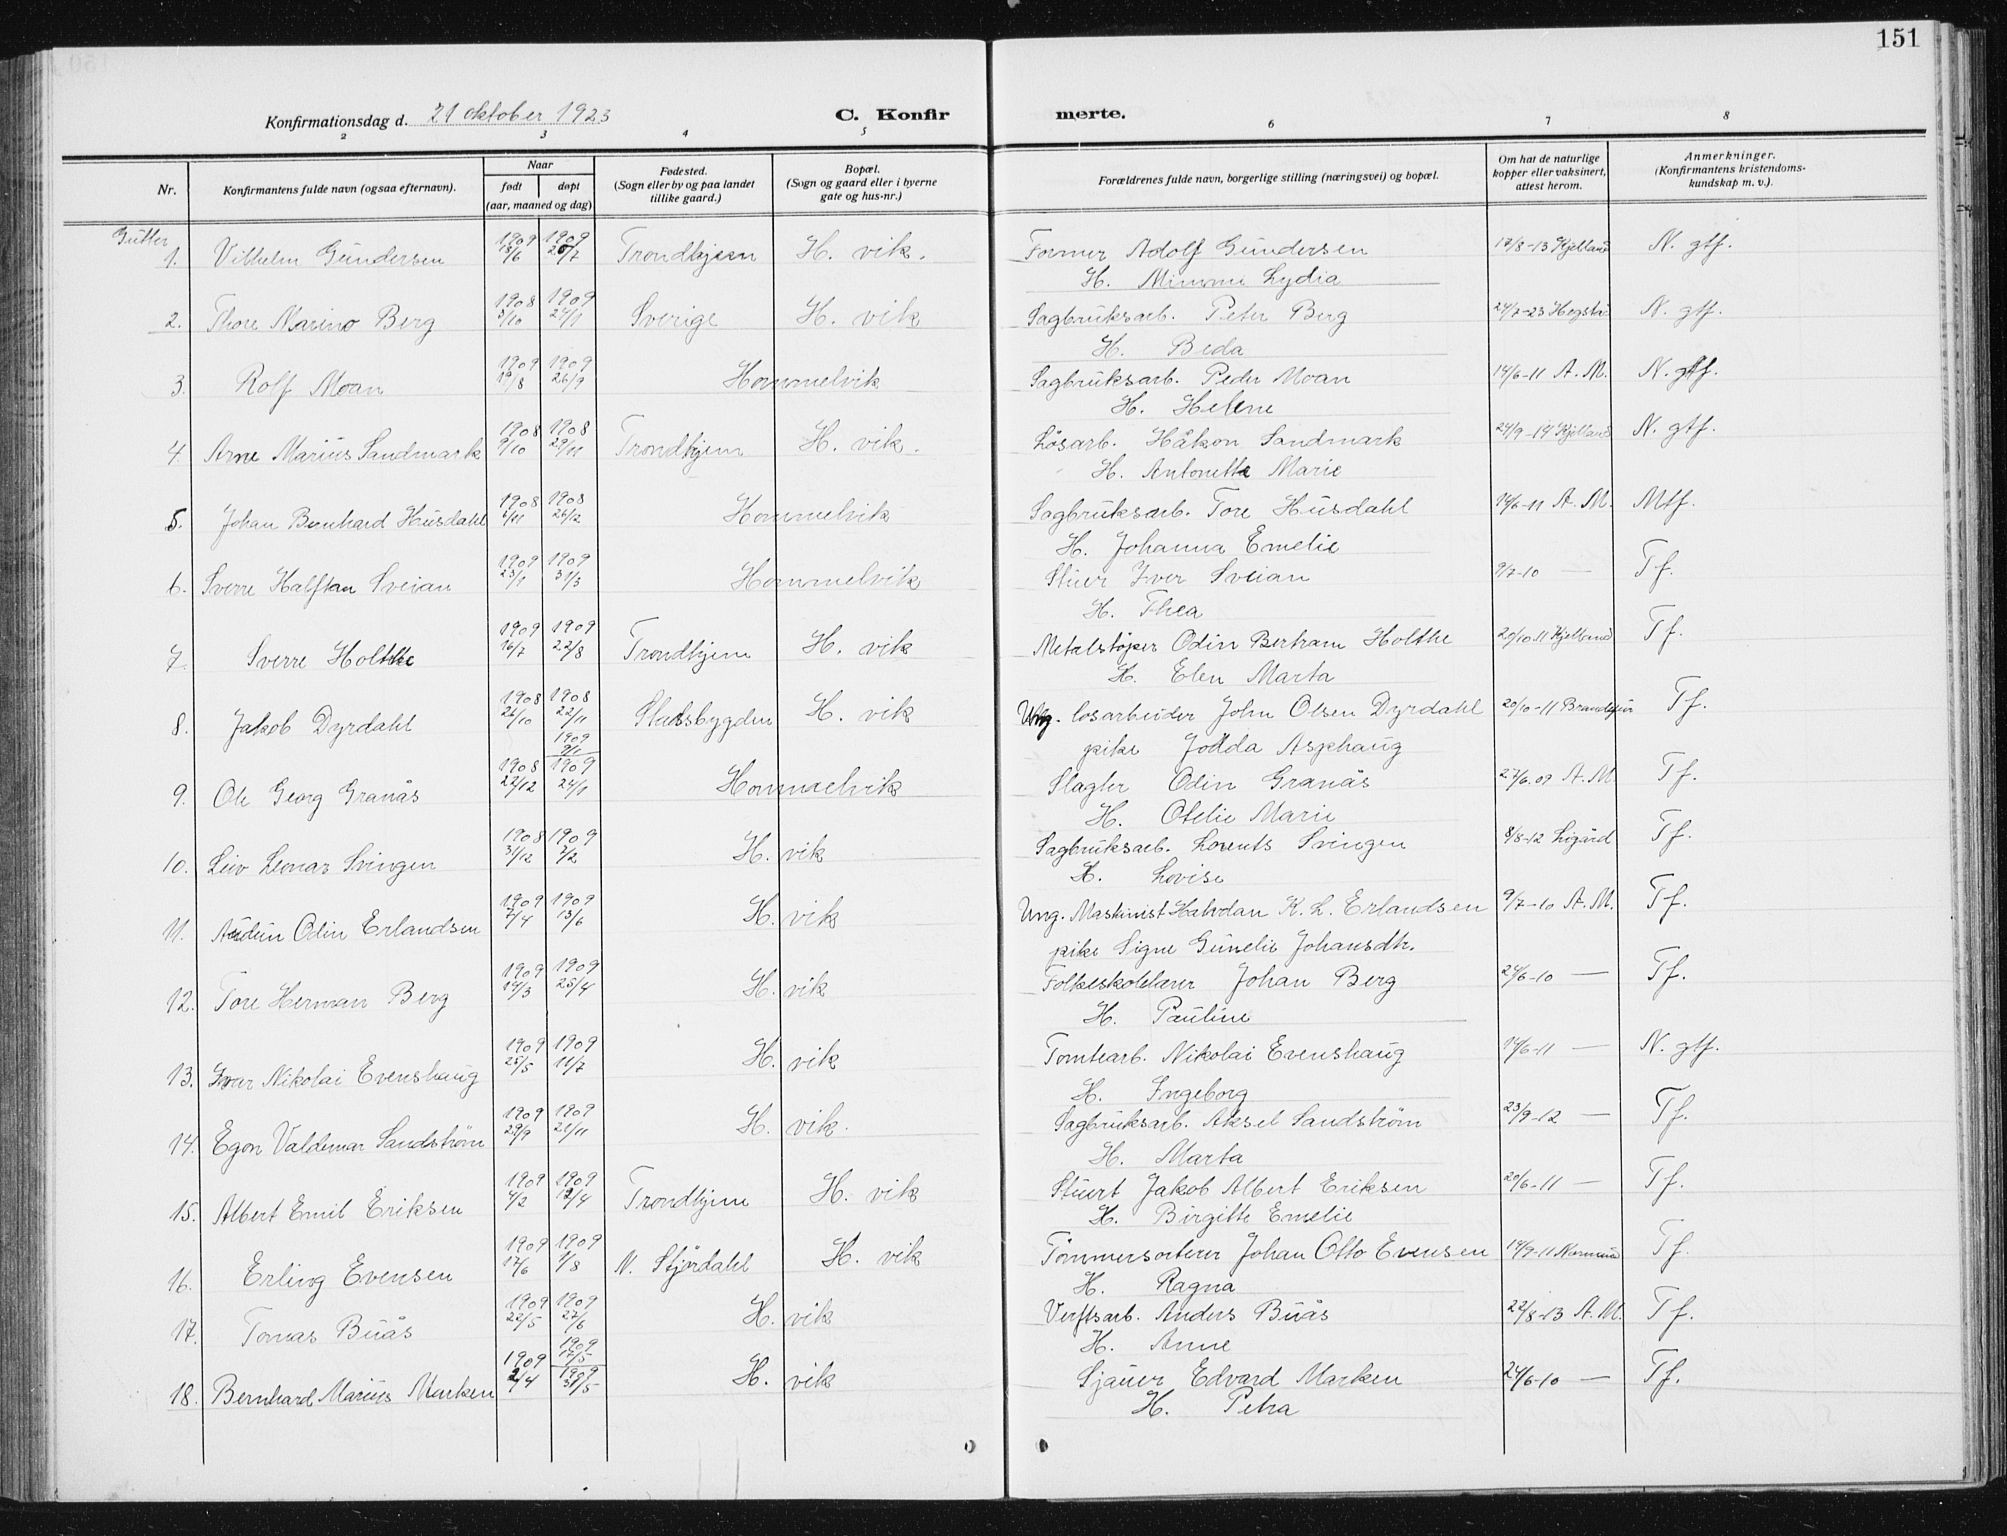 151
Konfirmationsdag d. 21 oktober 1923 C. Konfirmerte.
2 3 4 5 6 7 8
Nr. Konfirmantens fulde navn (ogsaa efternavn). Naar født døpt (aar, maaned og dag) Fødested. (Sogn eller by og paa landet tillike gaard.) Bopæl. (Sogn og gaard eller i byerne gate og hus-nr.) Forældrenes fulde navn, borgerlige stilling (næringsvei) og bopæl. Om hat de naturlige kopper eller vaksinert, attest herom. Anmerkninger. (Konfirmantens kristendomskundskap m. v.).
Gutter
1. Vilhelm Gundersen 1909 18/6 1909 25/7 Trondhjem H. vik. Former Adolf Gundersen 17/8-13 Kjelland N. gtf.
H. Mimmi Lydia
2. Thore Marino Berg 1908 3/10 1909 24/1 Sverige H. vik Sagbruksarb. Peter Berg 24/7-23 Hogstad N. gtf.
H. Beda
3. Rolf Moan 1909 19/8 1909 26/9 Hommelvik Sagbruksarb. Peder Moan 14/6-11 A. M. N. gtf.
H. Helene
4. Arne Marius Sandmark 1908 9/10 1908 29/11 Trondhjem H. vik. Løsarb. Håkon Sandmark 24/9-14 Kjelland N. gtf.
H. Antonette Marie
5. Johan Bernhard Husdahl 1908 1/11 1908 26/12 Hommelvik Sagbruksarb. Tore Husdahl 14/6-11 A. M. Mtf.
H. Johanna Emelie
6. Sverre Halftan Sveian 1909 23/1 1909 31/3 Hommelvik Stuer Iver Sveian 9/7-10 — Tf.
H. Thea
7. Sverre Holthe 1909 16/7 1909 22/8 Trondhjem H. vik Metalstøper Odin Bertram Holthe 20/10-11 Kjelland Tf.
H. Elen Marta
8. Jakob Dyrdahl 1908 26/10 1908 22/11 Stadsbygden H. vik Ung. løsarbeider John Olsen Dyrdahl 20/10-11 Tf.
1909 9/1 pike Jodda Asphaug
9. Ole Georg Granås 1908 22/12 1909 24/1 Hommelvik Slagter Odin Granås 27/6.09 A. M. Tf.
H. Otelie Marie
10. Leiv Leonar Svingen 1908 31/12 1909 7/2 H. vik Sagbruksarb. Lorents Svingen 8/8-12 Ligård Tf.
H. Lovise
11. Audun Odin Erlandsen 1909 7/4 1909 13/6 H. vik Ung. Maskinist Halvdan K. L. Erlandsen 9/7-10 A. M. Tf.
pike Signe Gunelie Johansdtr.
12. Tore Herman Berg 1909 14/3 1909 25/4 H. vik Folkeskolelærer Johan Berg 24/6-10 — Tf.
H. Pauline
13. Ivar Nikolai Evenshaug 1909 25/5 1909 11/7 H. vik Tomtearb. Nikolai Evenshaug 14/6-11 — N. gtf.
H. Ingeborg
14. Egon Valdemar Sandstrøm 1909 29/9 1909 21/11 H. vik. Sagbruksarb. Aksel Sandstrøm 23/9-12 — Tf.
H. Marta
15. Albert Emil Eriksen 1909 4/2 1909 12/4 Trondhjem H. vik Stuert Jakob Albert Eriksen 20/6-11 — Tf.
H. Birgitte Emelie
16. Erling Evensen 1909 17/6 1909 1/8 N. Stjørdahl H. vik Tømmersorterer Johan Otto Evensen 14/9-11 Tf.
H. Ragna
17. Tomas Buås 1909 22/5 1909 27/6 H. vik Verftsarb. Anders Buås 22/8-13 A. M. Tf.
H. Anne
18. Bernhard Marius Marken 1909 2/4 1909 17/5 1909 31/5 H. vik Sjauer Edvard Marken 24/6-10 — Tf.
H. Petra